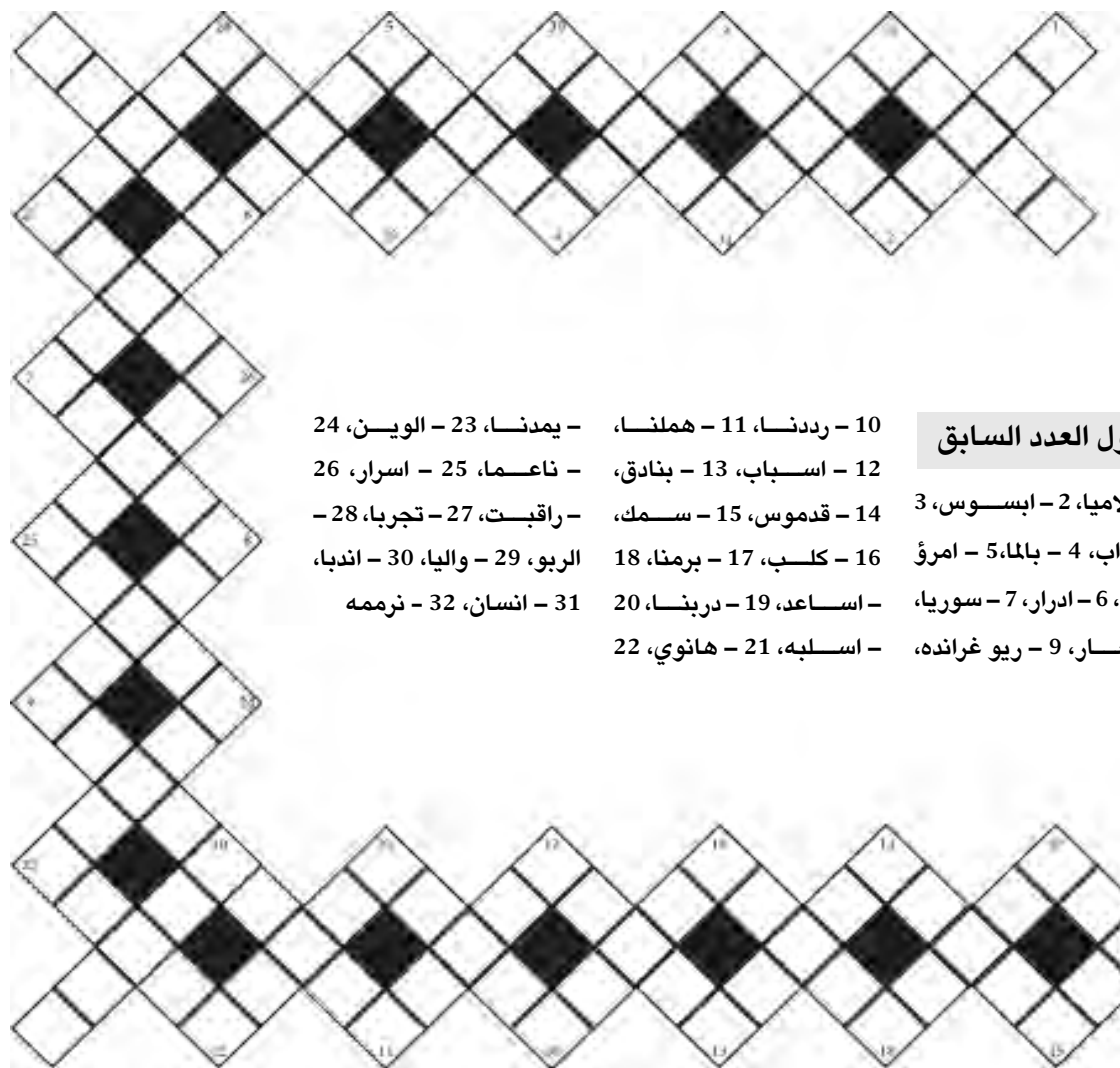 ول العدد السابق
لاميا، 2 – ابسوس، 3
اب، 4 – بالما،5 – امرؤ
، 6 – ادرار، 7 – سوريا،
ـار، 9 – ريو غرانده،
10 – رددنا، 11 – هملنا،
12 – اسباب، 13 – بنادق،
14 – قدموس، 15 – سمك،
16 – كلب، 17 – برمنا، 18
– اساعد، 19 – دربنا، 20
– اسلبه، 21 – هانوي، 22
– يمدنا، 23 – الوين، 24
– ناعما، 25 – اسرار، 26
– راقبت، 27 – تجربا، 28 –
الربو، 29 – واليا، 30 – اندبا،
31 – انسان، 32 - نرممه